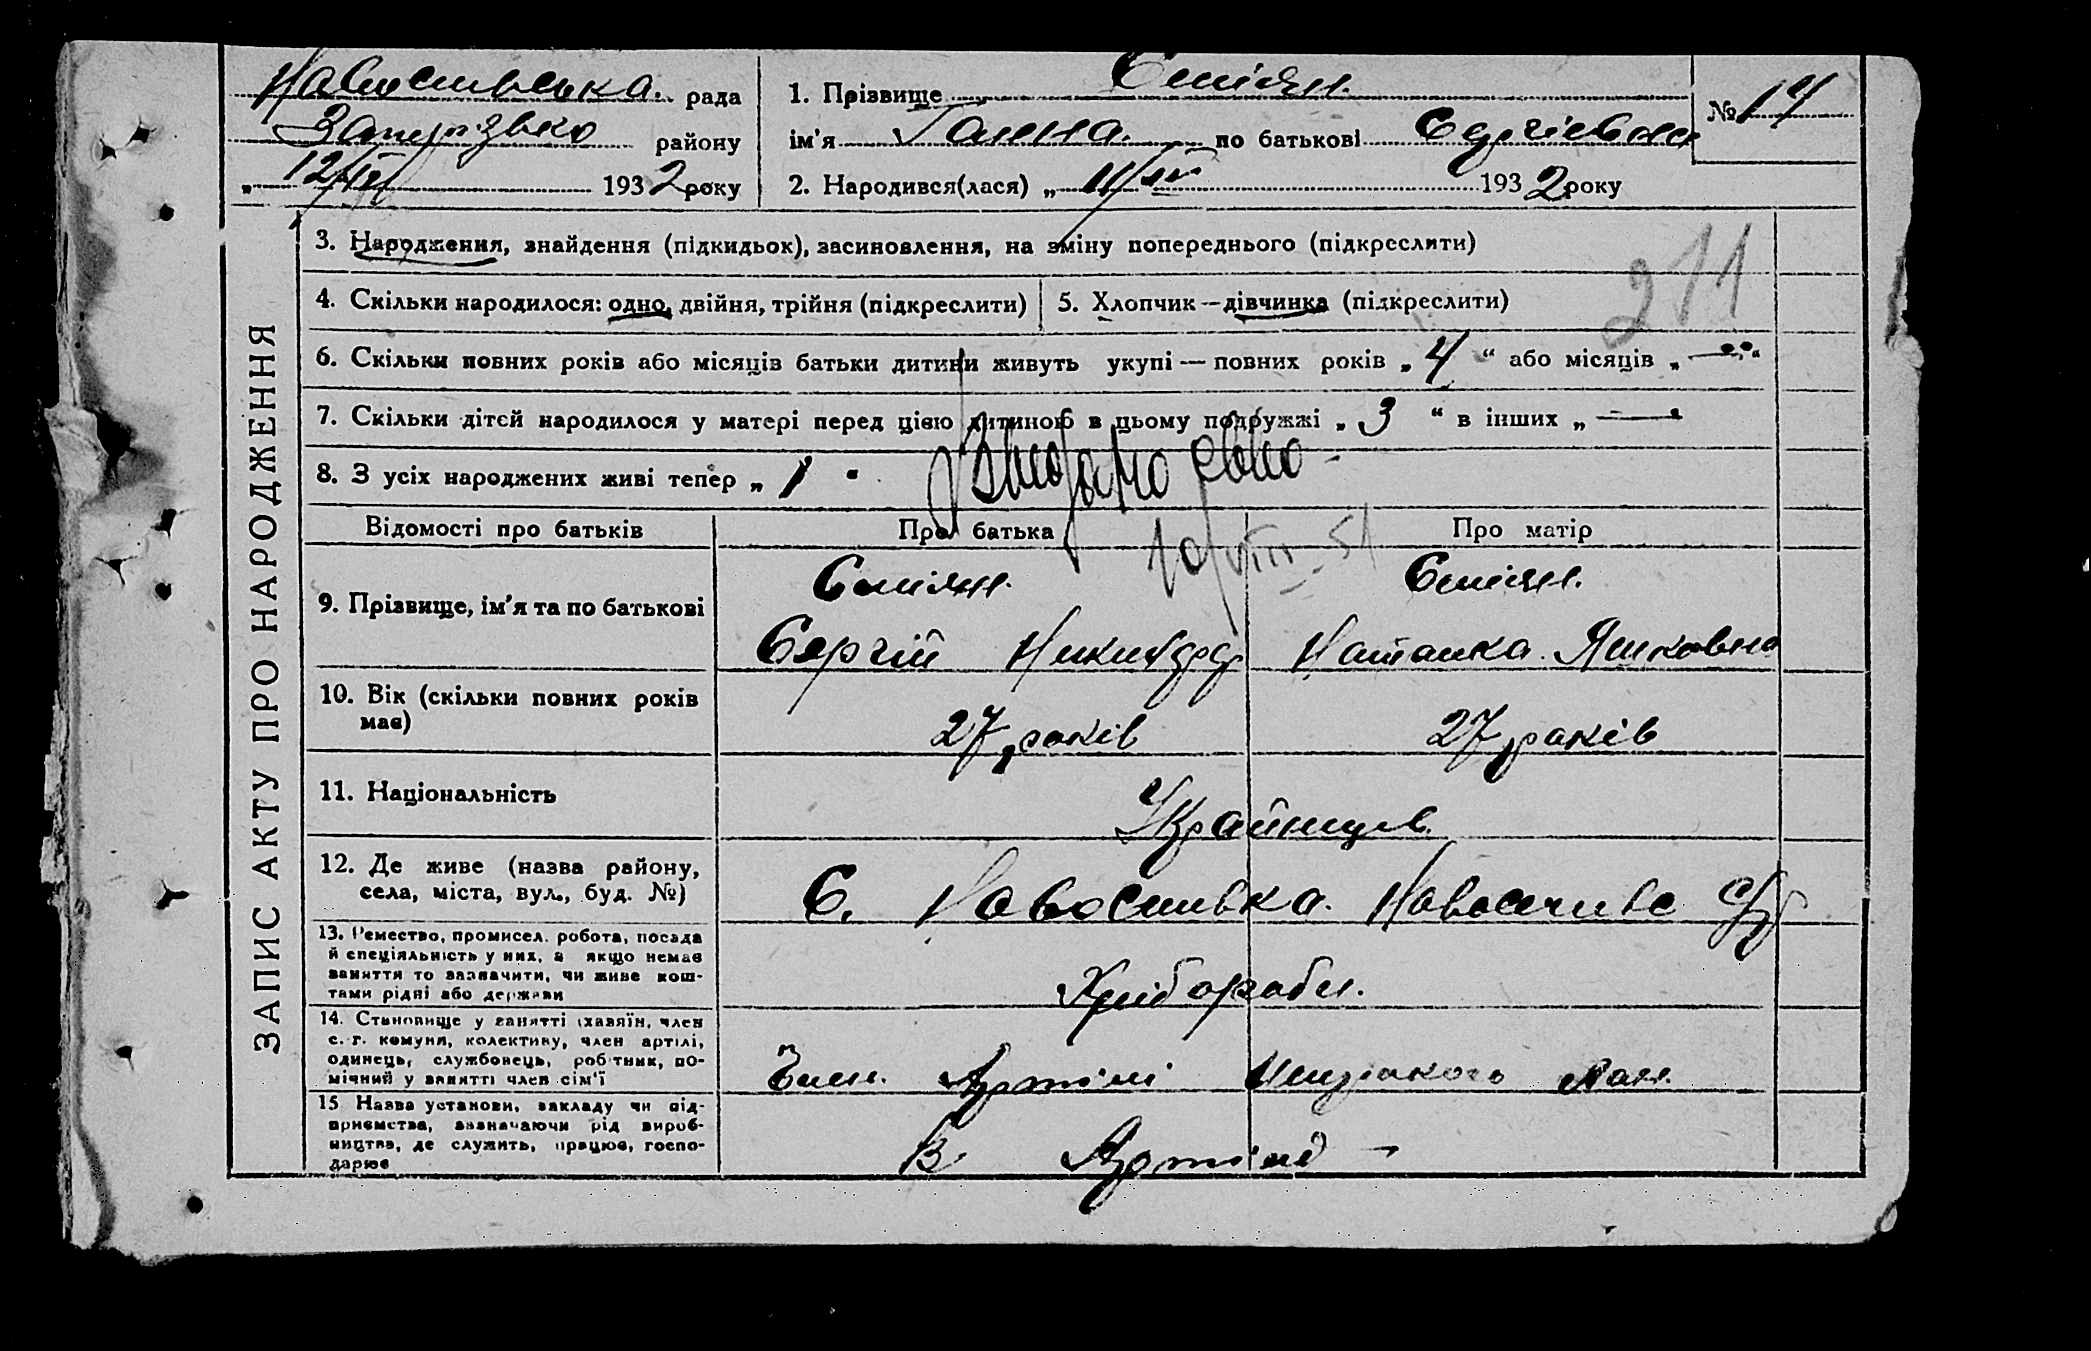 рада
району
"12/IV 1932 року
1. Прізвище
ім'я Галина. по батькові
2. Народився(лася) „11/IV 1932 року
№ 17
ЗАПИС АКТУ ПРО НАРОДЖЕННЯ
3. Народження, знайдення (підкидьок), засиновлення, на зміну попереднього (підкреслити)
211
4. Скільки народилося: одно, двійня, трійня (підкреслити)
5. Хлопчик—дівчинка (підкреслити)
6. Скільки повних років або місяців батьки дитини живуть укупі — повних років „4“ або місяців „—“
7. Скільки дітей народилося у матері перед цією дитиною в цьому подружжі „3“ в інших „—
8. З усіх народжених живі тепер „1“
10/VIII-51
Відомості про батьків
Про батька
Про матір
9. Прізвище, ім'я та по батькові
Сергій
10. Вік (скільки повних років
має)
27 років
27 років
11. Національність
Українців
12. Де живе (назва району,
села, міста, вул., буд. №)
С.
13. Ремество, промисел. робота, посада
й спеціяльність у них, а якщо немає
заняття то зазначити, чи живе кош-
тами рідні або держави
Хліборобы.
14. Становище у занятті (хазяїн, член
с.-г. комуни, колективу, член артілі,
одинець, службовець, робітник, по-
мічний у занятті член сім'ї
Член. Артілі
15 Назва установи, закладу чи під-
приємства, зазначаючи рід вироб-
ництва, де служить, працює, госпо-
дарює
В Артілі —